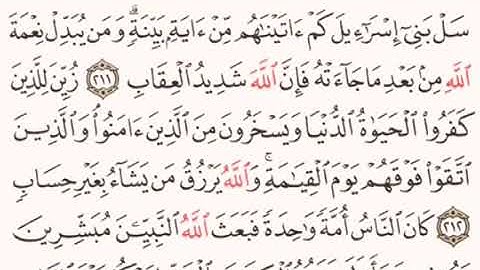 سَلْ بَنِىٓ إِسْرَٰٓءِيلَ كَمْ ءَاتَيْنَٰهُم مِّنْ ءَايَةٍۭ بَيِّنَةٍۗ وَمَن يُبَدِّلْ نِعْمَةَ
ٱللَّهِ مِنۢ بَعْدِ مَا جَآءَتْهُ فَإِنَّ ٱللَّهَ شَدِيدُ ٱلْعِقَابِ ٢١١ زُيِّنَ لِلَّذِينَ
كَفَرُوا۟ ٱلْحَيَوٰةُ ٱلدُّنْيَا وَيَسْخَرُونَ مِنَ ٱلَّذِينَ ءَامَنُوا۟ وَٱلَّذِينَ
ٱتَّقَوْا۟ فَوْقَهُمْ يَوْمَ ٱلْقِيَٰمَةِۗ وَٱللَّهُ يَرْزُقُ مَن يَشَآءُ بِغَيْرِ حِسَابٍ
٢١٢ كَانَ ٱلنَّاسُ أُمَّةً وَٰحِدَةً فَبَعَثَ ٱللَّهُ ٱلنَّبِيِّـۧنَ مُبَشِّرِينَ